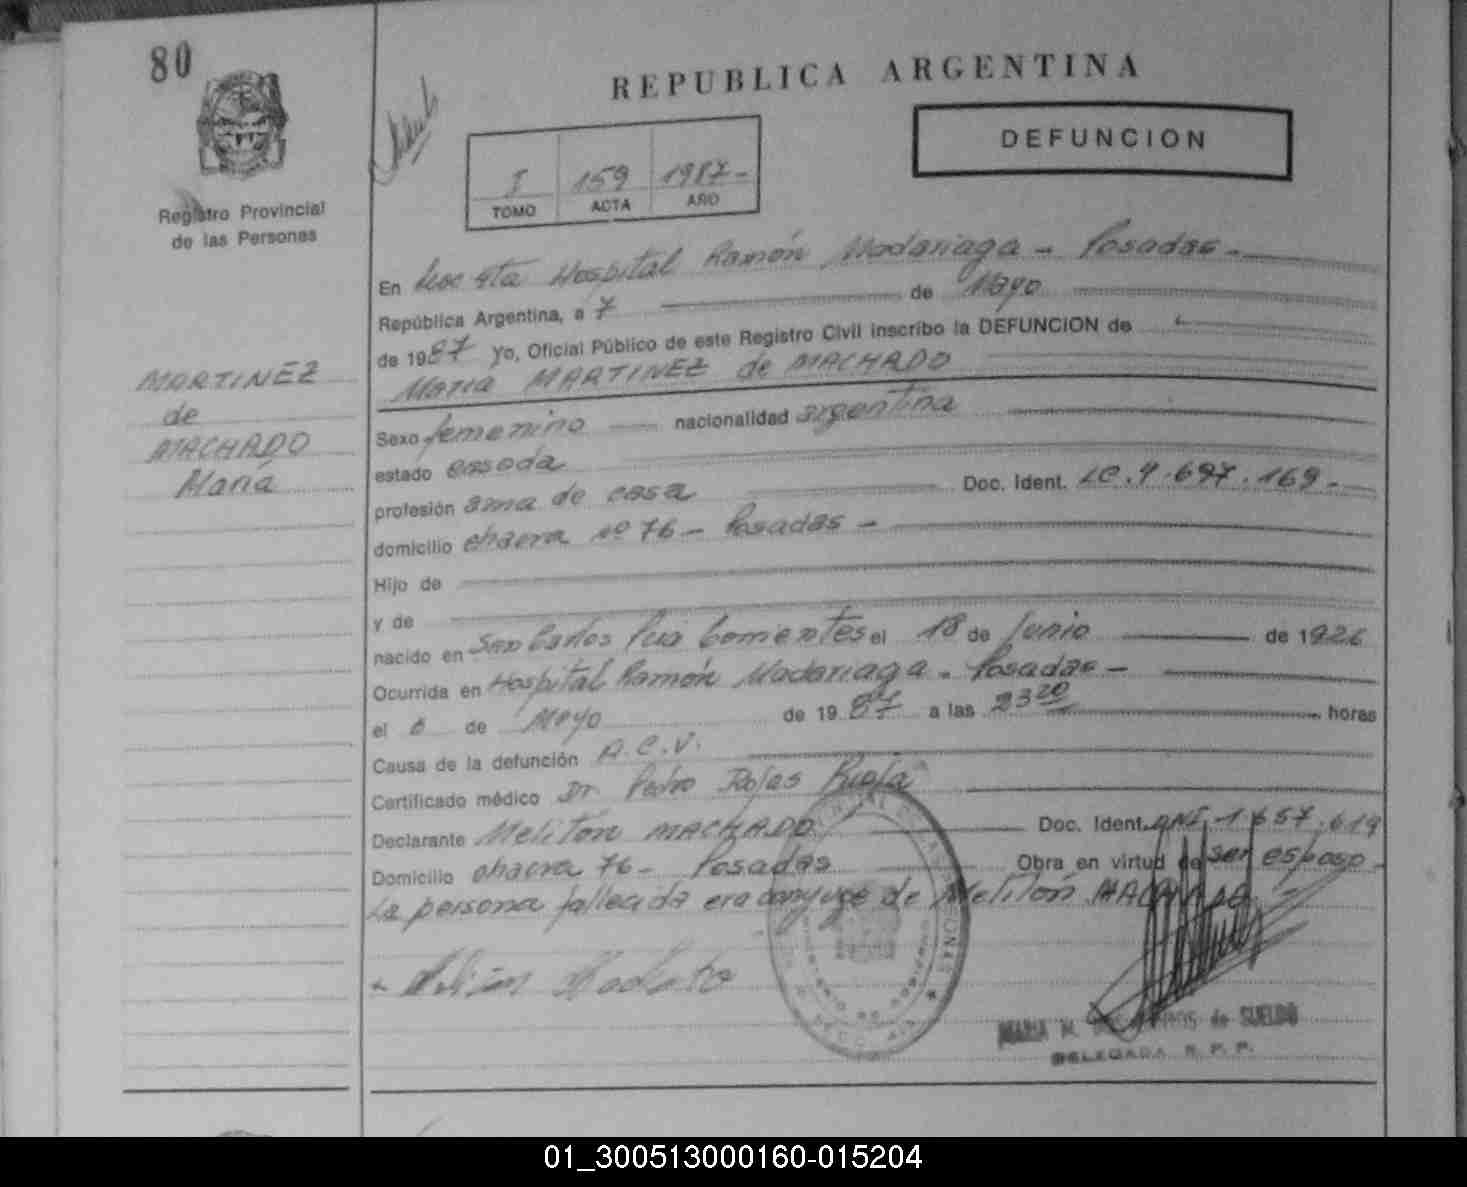 80
REPUBLICA ARGENTINA
DEFUNCION
I 159 1987-
TOMO ACTA AÑO
Registro Provincial
de las Personas
En Hospital Ramón Madariaga - Posadas -
República Argentina, a 7 de Mayo
de 1987 yo, Oficial Público de este Registro Civil inscribo la DEFUNCION de
Maria MARTINEZ de MACHADO
MARTINEZ
de
MACHADO
Maria
Sexo femenino nacionalidad argentina
estado casada
profesión ama de casa Doc. Ident. LC. 4.697.169-
domicilio chacra nº 76 - Posadas -
Hijo de
y de
nacido en San Carlos Pcia Corrientes el 18 de Junio de 1926
Ocurrida en Hospital Ramón Madariaga - Posadas -
el 6 de Mayo de 1987 a las 23 20 horas
Causa de la defunción A.C.V.
Certificado médico Dr Pedro Rojas
Declarante Melitón MACHADO Doc. Ident. DNI 1 657.619
Domicilio chacra 76 - Posadas Obra en virtud de ser esposo -
La persona fallecida era conyuge de Melitón MACHADO -
MARIA M. de SUELDO
DELEGADA R. P. P.
01_300513000160-015204